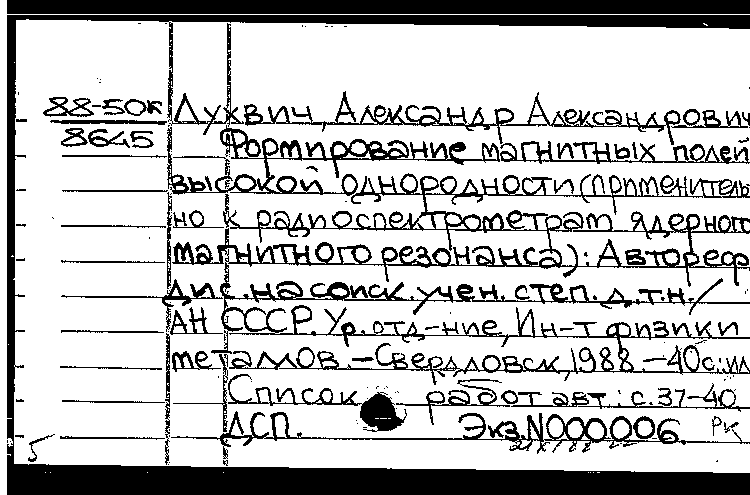 88-50к Лухвич, Александр Александрович
8645 Формирование магнитных полей
высокой однородности (применитель
но к радиоспектрометрам ядерного
магнитного резонанса): Автореф.
дис. на соиск. учен. степ. д.т.н./
АН СССР. Ур. отд-ние, Ин-т физики
металлов. – Свердловск, 1988. – 40с.: ил
Список работ авт.: с.37-40.
ДСП. Экз. N000006. РК
5